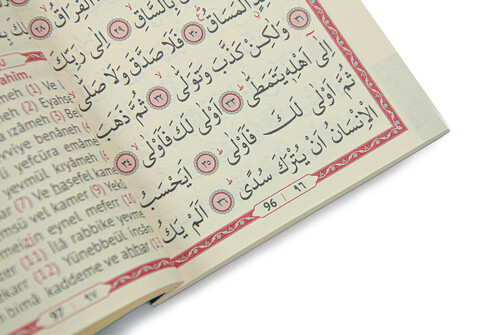 الْفِرَاقُ ﴿٢٨﴾
بِالسَّاقِ ﴿٢٩﴾ اِلٰى رَبِّكَ
الْمَسَاقُ ﴿٣٠﴾ فَلَا صَدَّقَ وَلَا صَلّٰى
﴿٣١﴾ وَلٰكِنْ كَذَّبَ وَتَوَلّٰى ﴿٣٢﴾ ثُمَّ ذَهَبَ
اِلٰٓى اَهْلِه۪ يَتَمَطّٰى ﴿٣٣﴾ اَوْلٰى لَكَ فَاَوْلٰى ﴿٣٤﴾
ثُمَّ اَوْلٰى لَكَ فَاَوْلٰى ﴿٣٥﴾ اَيَحْسَبُ
الْاِنْسَانُ اَنْ يُتْرَكَ سُدًى ﴿٣٦﴾ اَلَمْ يَكُ
96 | ٩٦
ahim.
meh (1) Ve
(2) Eyahse
izâmeh (3) Bel
vviye benâneh
li yefcüra emâme
yevmül kıyâmeh
(7) Ve hasefel kamer
vel kamer (9)
eynel meferr
(11) İlâ rabbike yevme
karr (12) Yünebbeül insân
bimâ kaddeme ve ahhar
97 | ٩٧